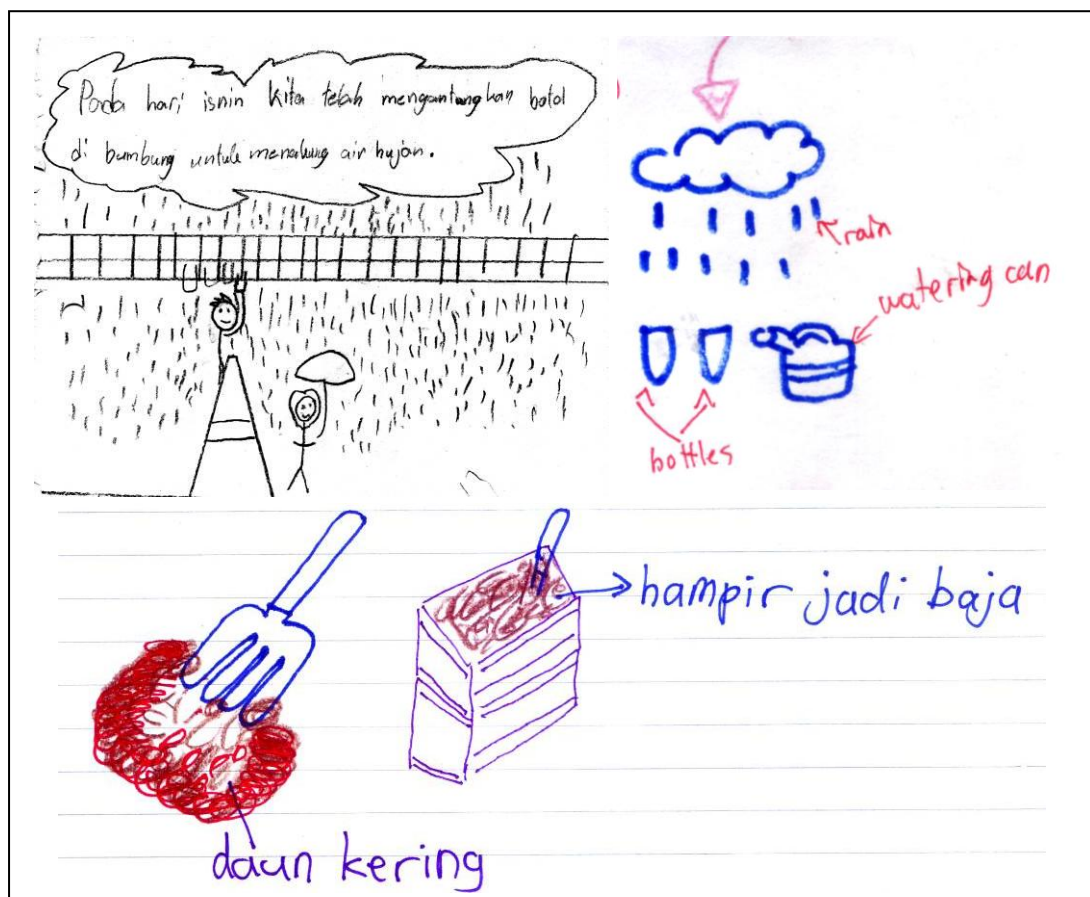 Pada hari isnin kita telah mengantungkan botol
di bumbung untuk menabung air hujan.
rain
watering can
bottles
hampir jadi baja
daun kering